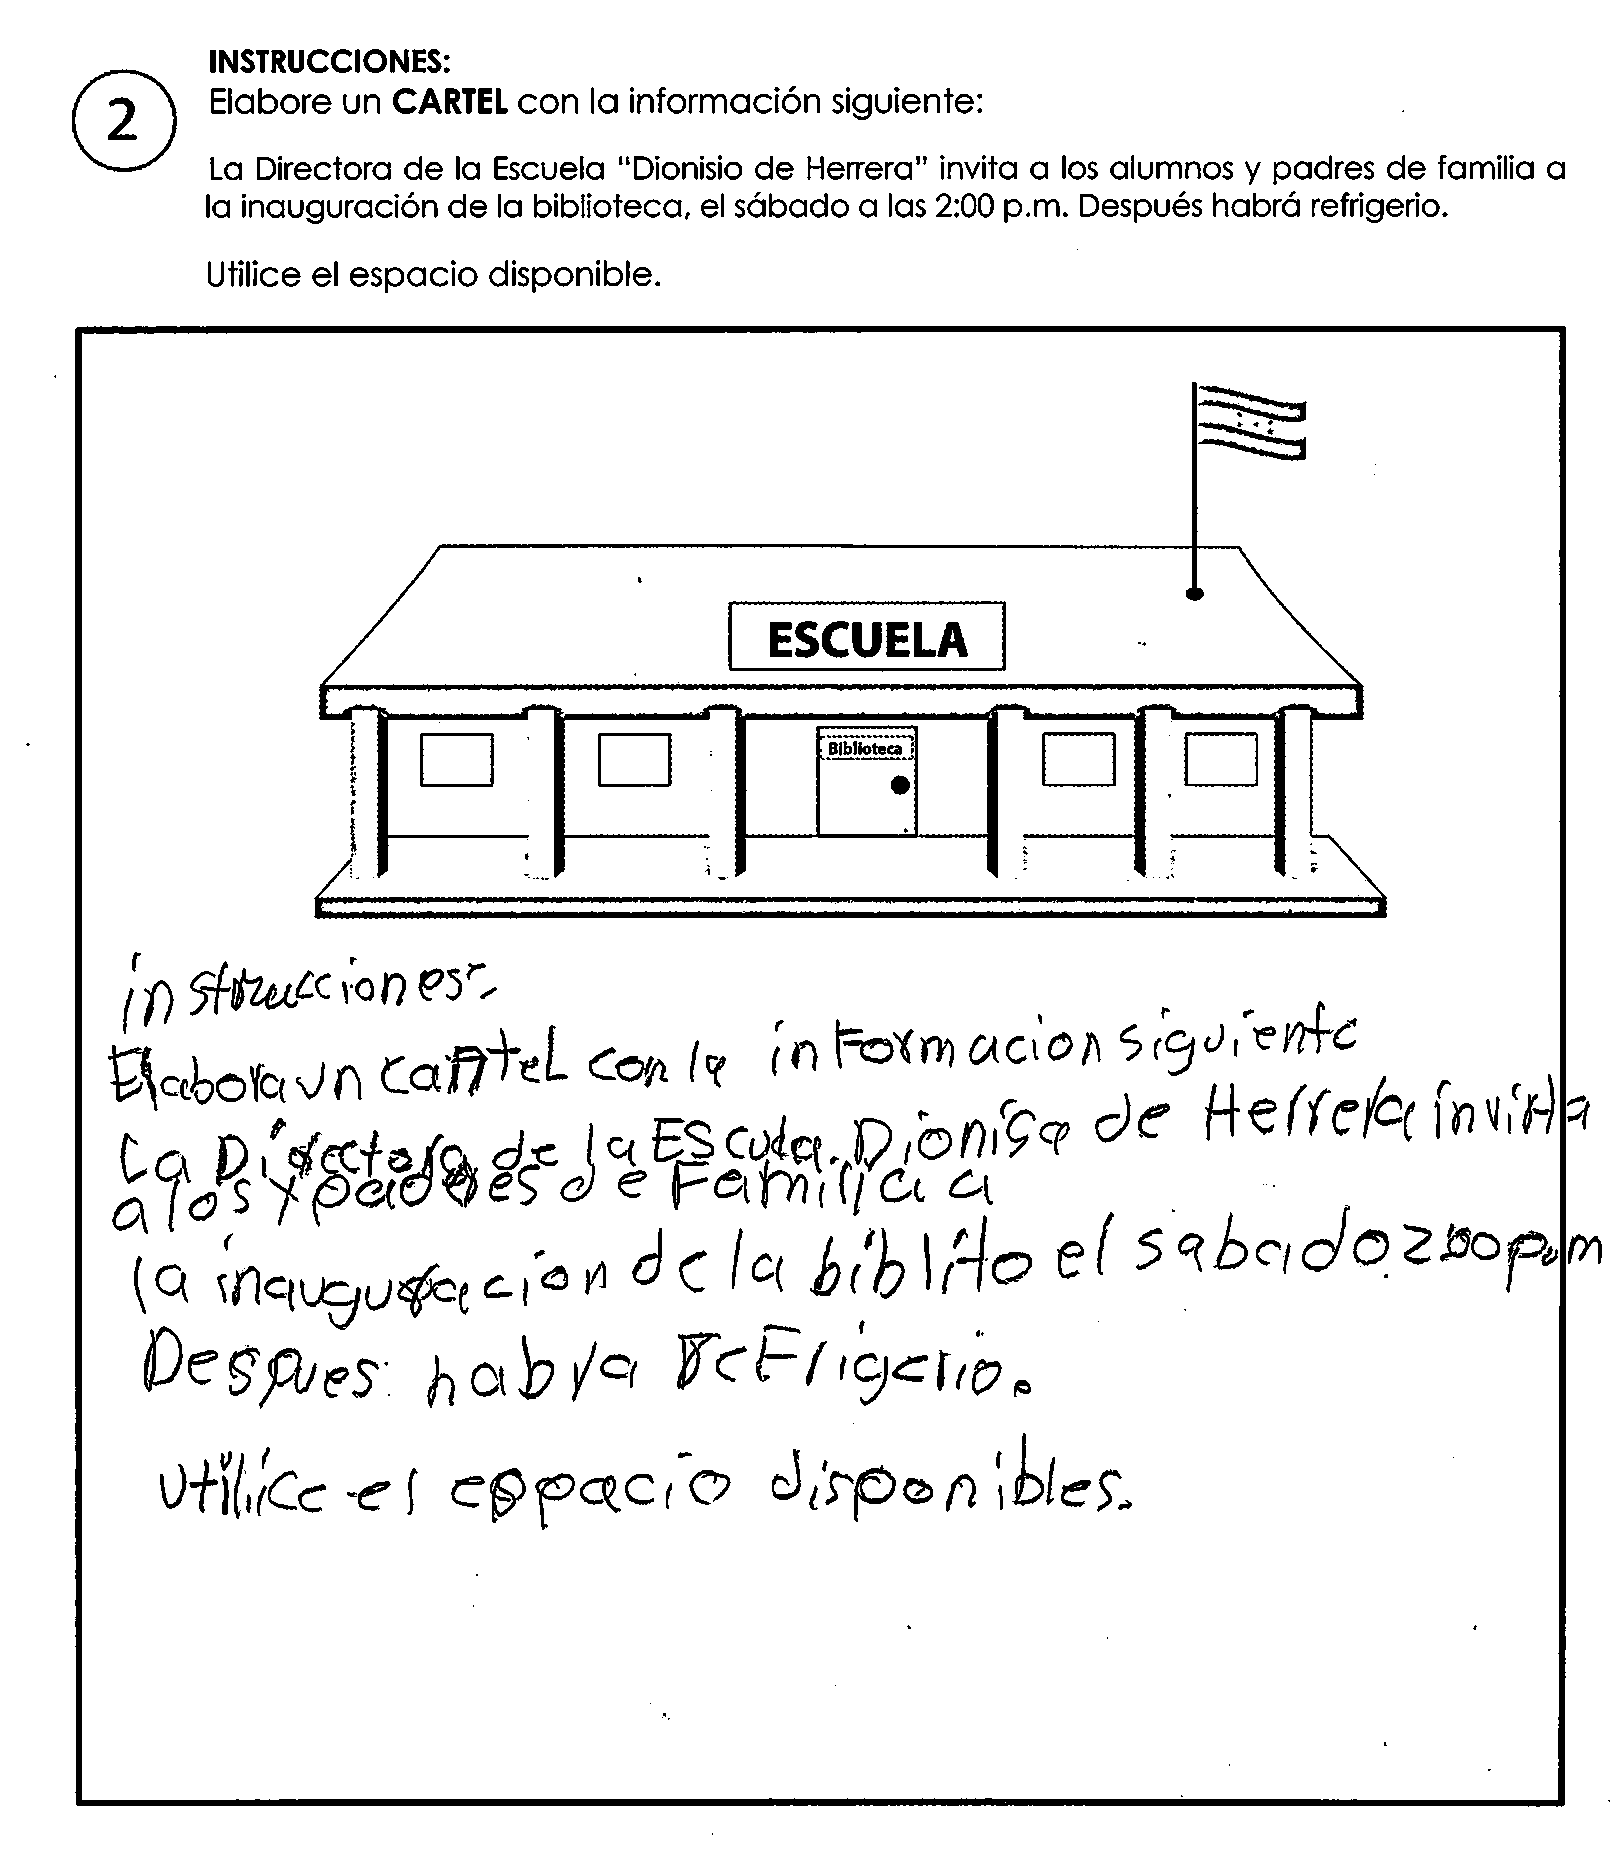 INSTRUCCIONES:
2
Elabore un CARTEL con la información siguiente:
La Directora de la Escuela "Dionisio de Herrera" invita a los alumnos y padres de familia a
la inauguración de la biblioteca, el sábado a las 2:00 p.m. Después habrá refrigerio.
Utilice el espacio disponible.
ESCUELA
Biblioteca
instrucciones
Elabora un cartel con la informacion siguiente
La Directora de la EScula. Dionisa de Herrera
a los y padres de Familia a
la inauguracion de la biblito el sabado 2:00 p.m
Despues habra reFrigerio.
utilice el espacio disponibles.